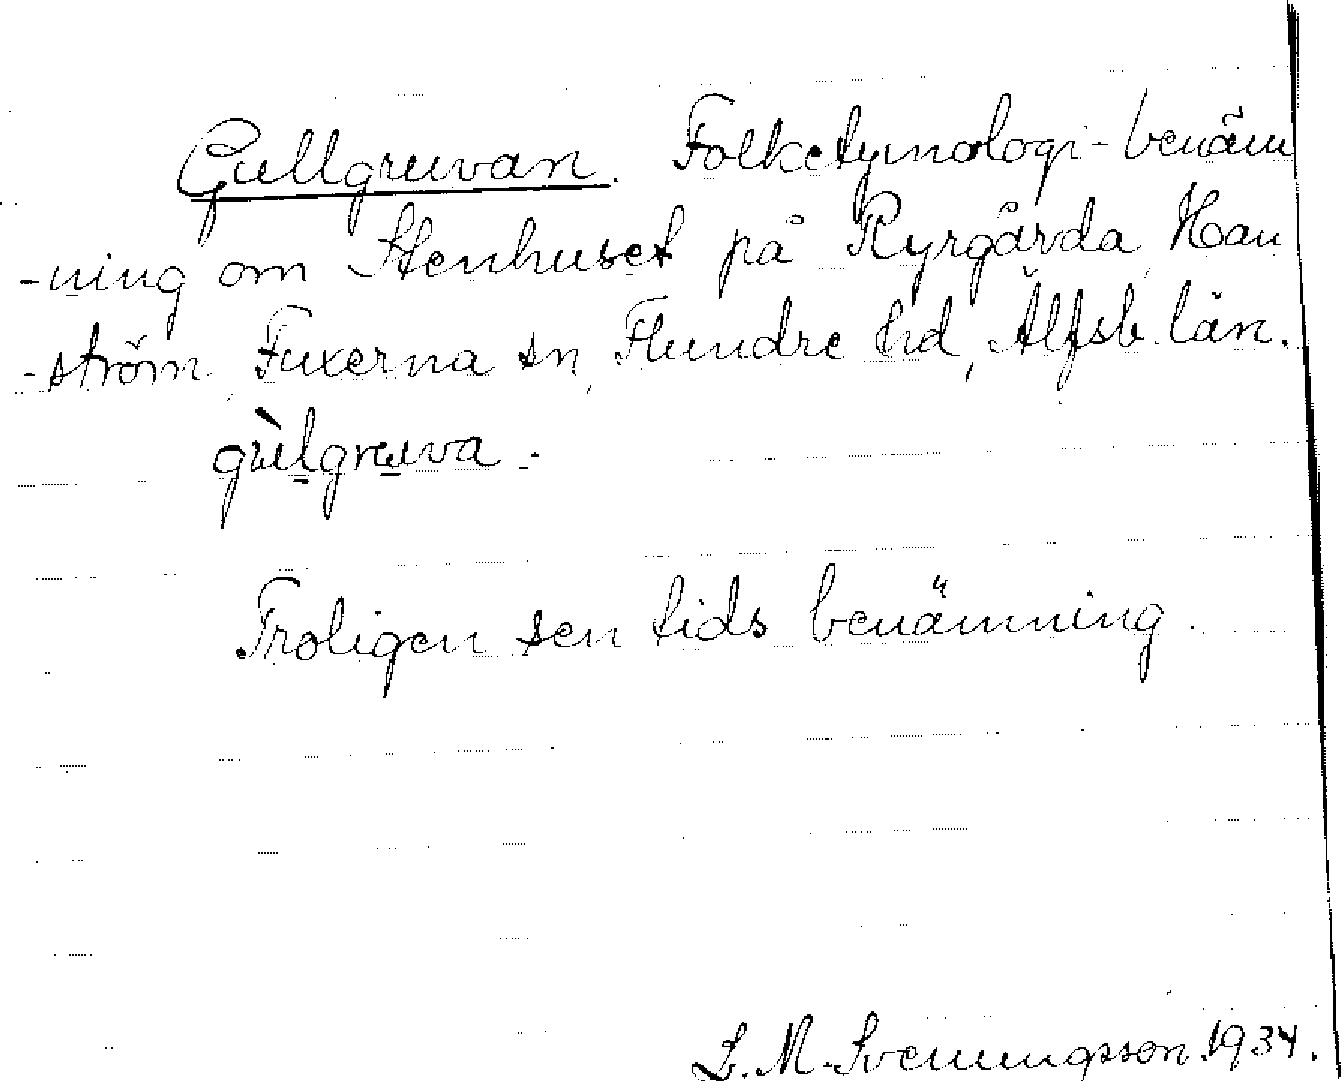 Gullgruvan. Folketymologi-benäm
-ning om Stenhuset på Ryrgärda Hau
-ström Fuxerna sn, Flundre hd, Älfsb. län.
gùlgruva.
Troligen sen tids benämning.
L. M. Svenungsson. 1934.